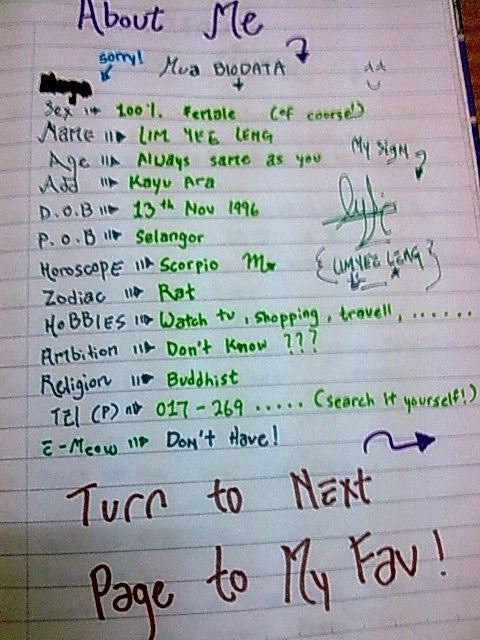 About Me
sorry!
Mua BIODATA
Sex 100% Female (of course!)
Name LIM YEE LENG
Age Always same as you
My sign
Add Kayu Ara
D.O.B 13th Nov 1996
P.O.B Selangor
{LIM YEE LENG}
Horoscope Scorpio
Zodiac Rat
Hobbies Watch tv, shopping, travell, .......
Ambition Don't know ???
Religion Buddhist
Tel (P) 017-269 ..... (search it yourself!)
E-Meow Don't Have!
Turn to Next
Page to My Fav!